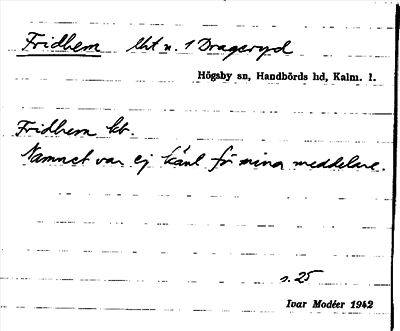 Fridhem lht u. 1 Drageryd
Högsby sn, Handbörds hd, Kalm. l.
Fridhem kt.
Namnet var ej känt för mina meddelare.
s. 25
Ivar Modéer 1942